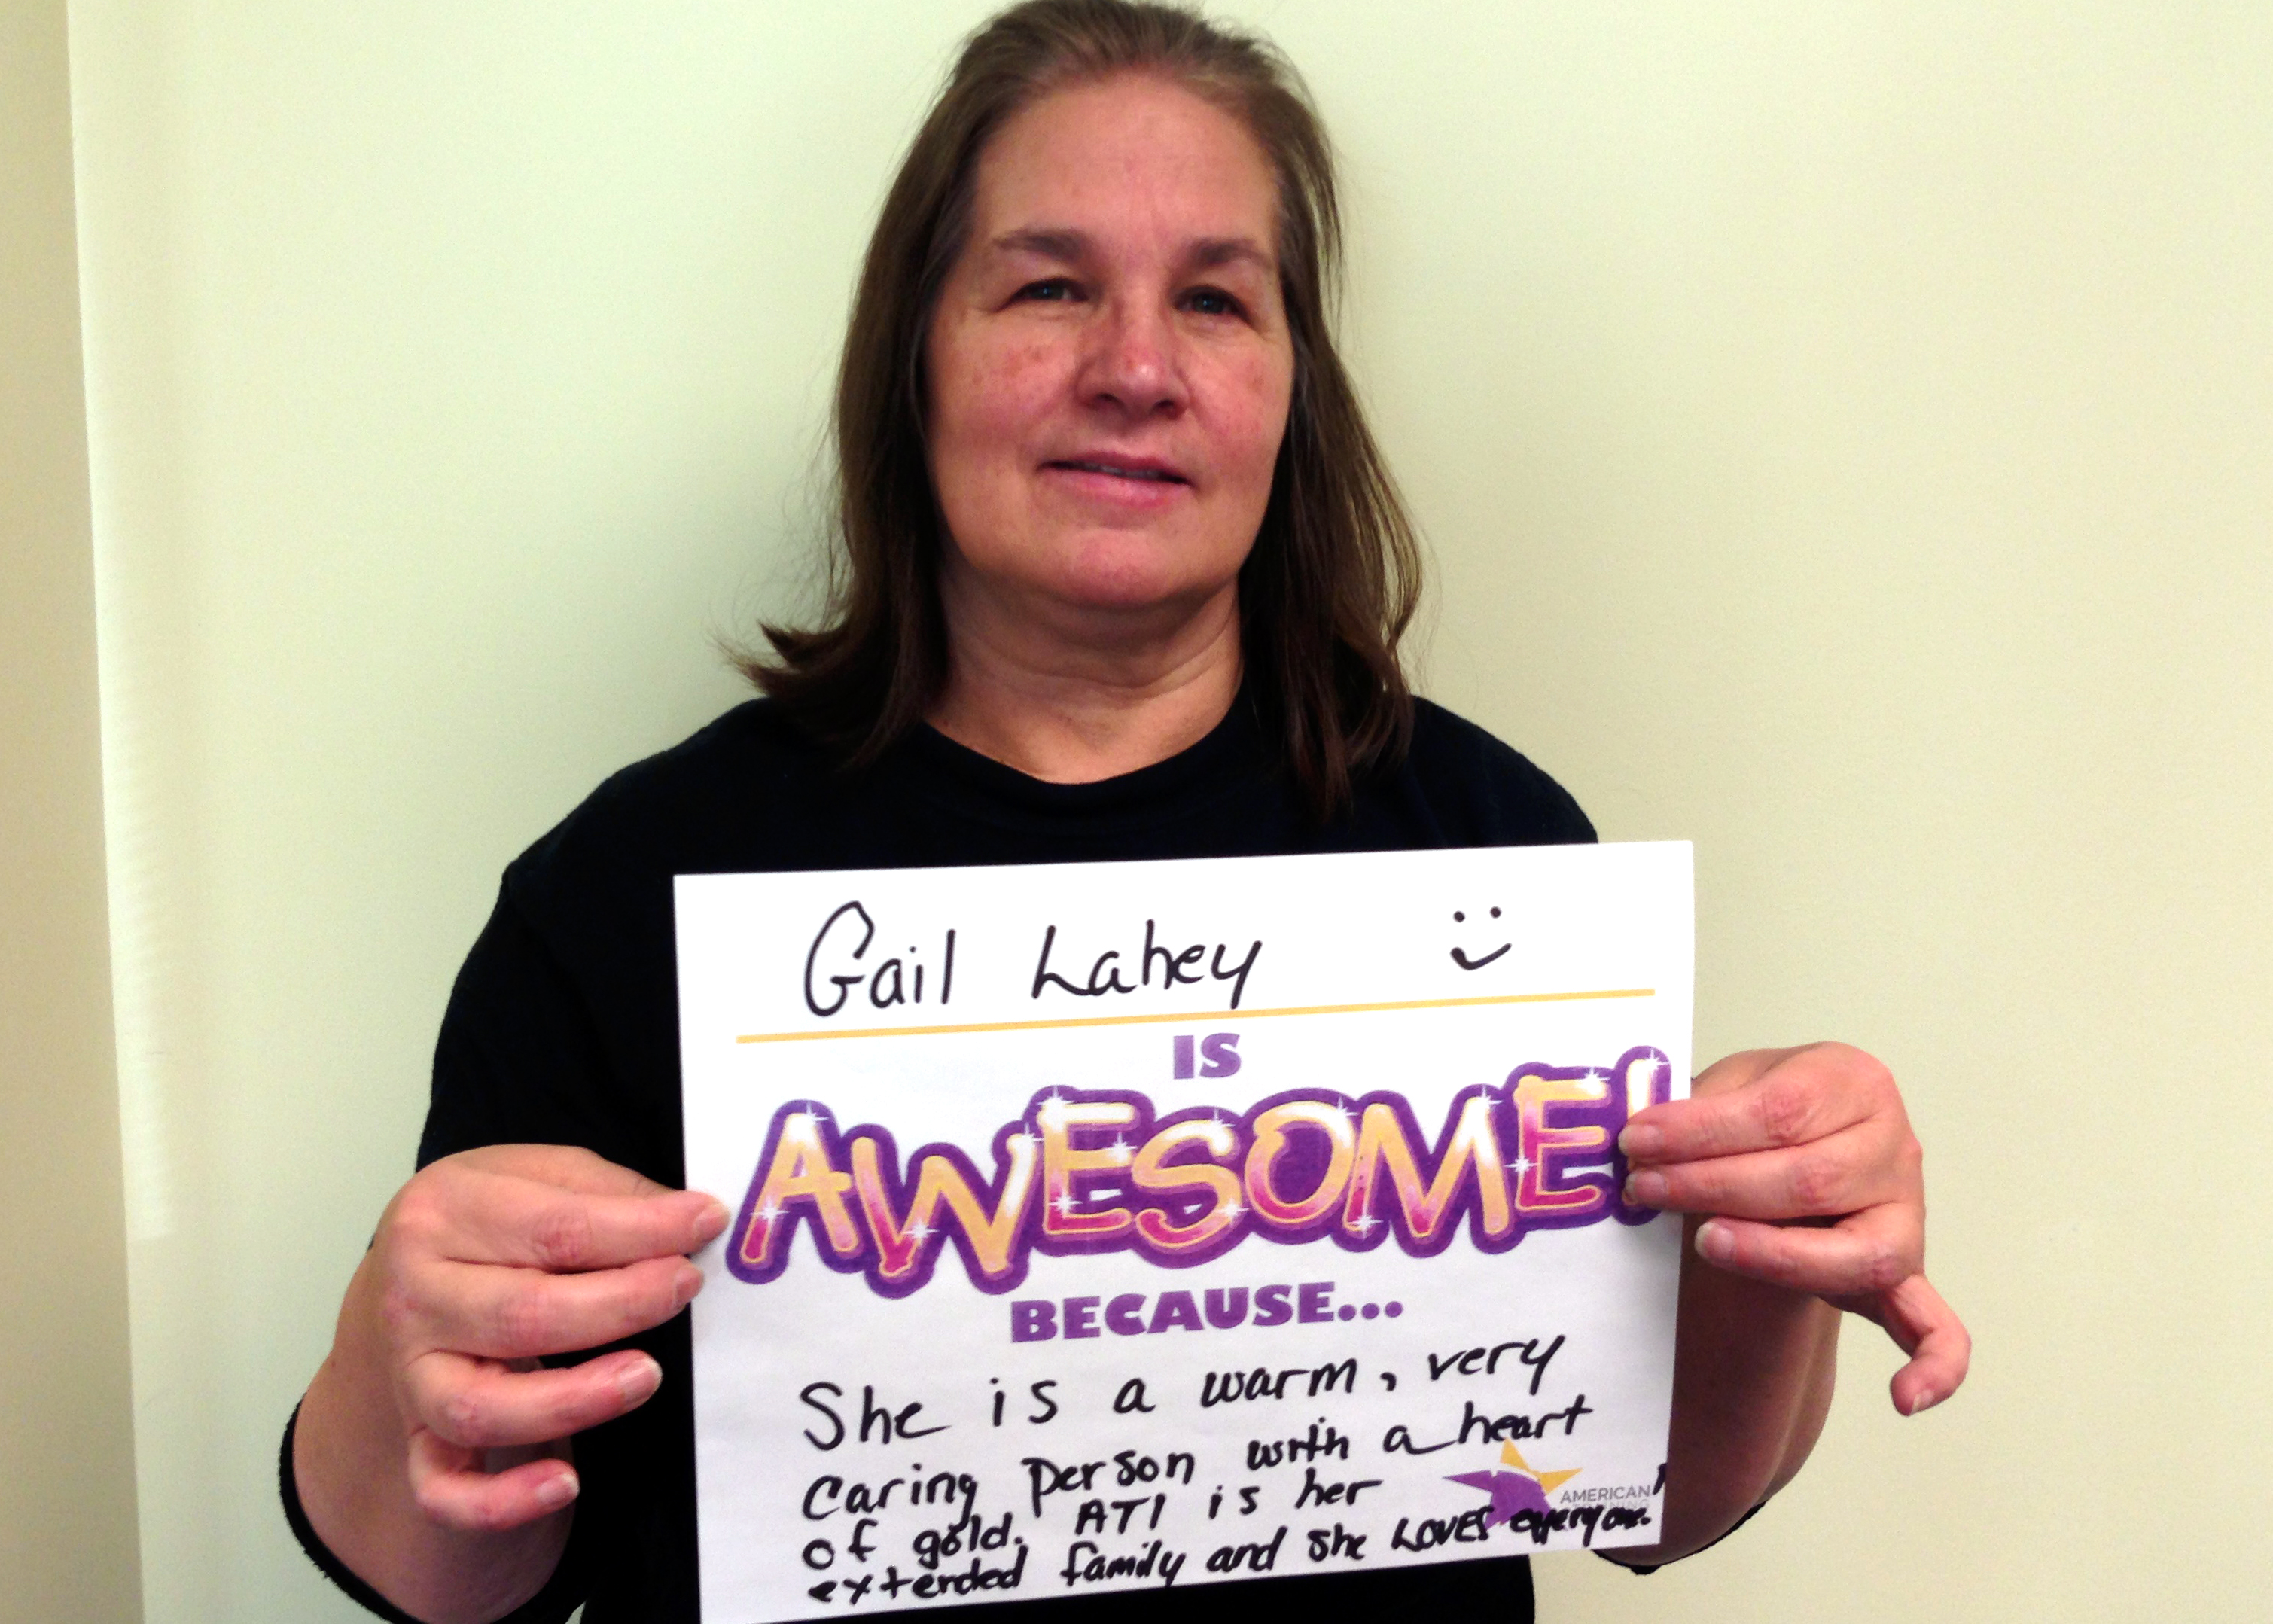 Gail Lahey
IS
AWESOME!
BECAUSE...
She is a warm, very
caring person with a heart
of gold. ATI is her
extended family and she LOVES everyone!
AMERICAN